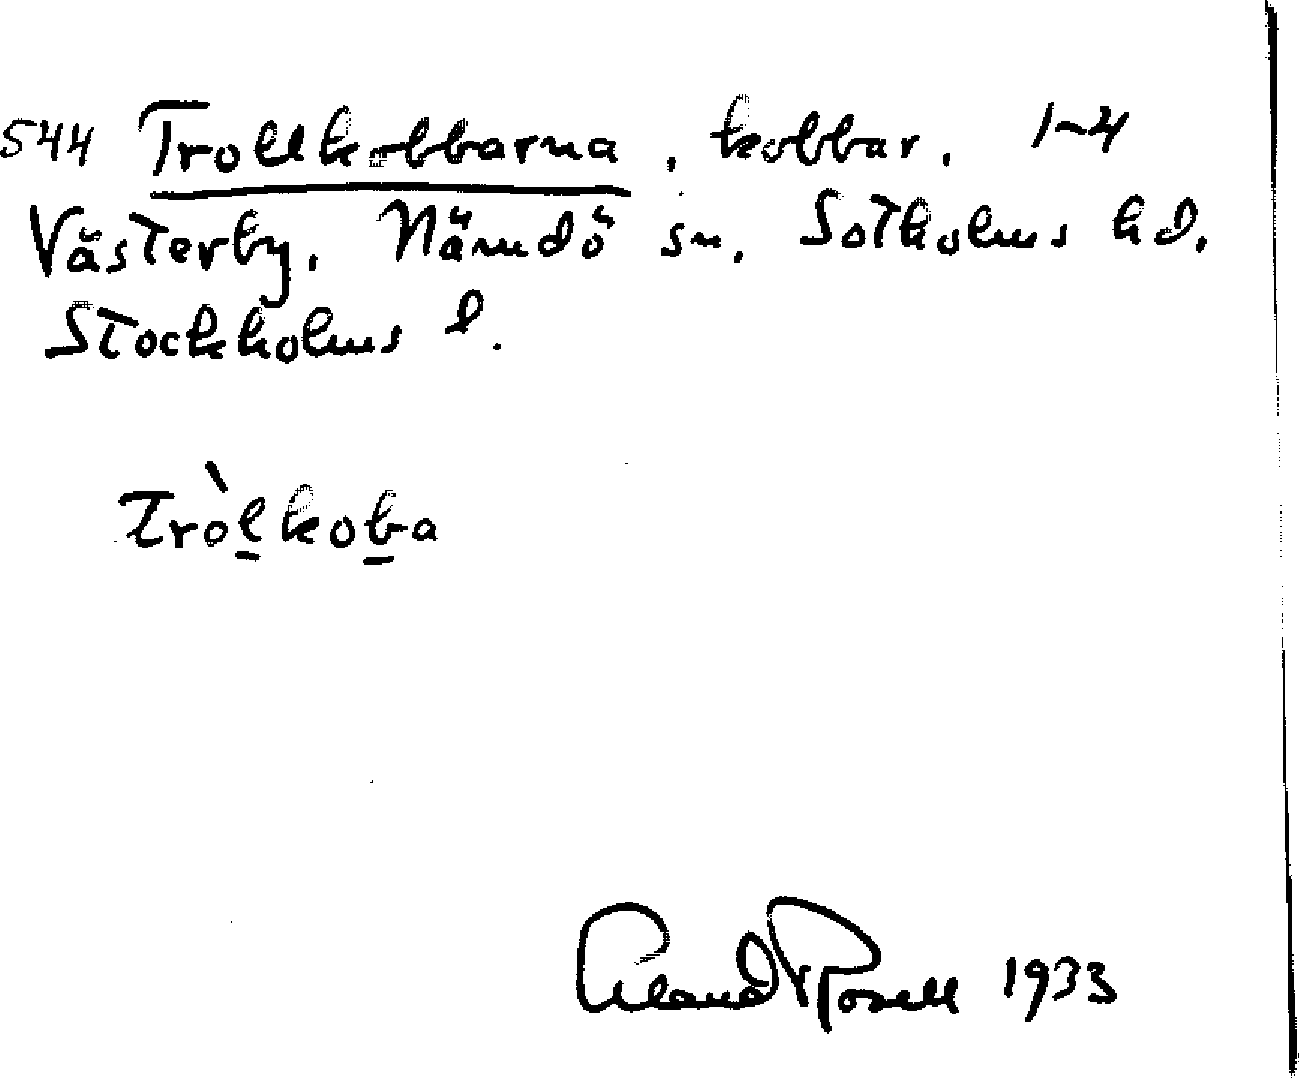 544 Trollkobbarna, kobbar. 1-4
Västerby, Nämdö sn, Sotholms hd.
Stockholms l.
Tròl̲kob̲a
Erland Rosell 1933